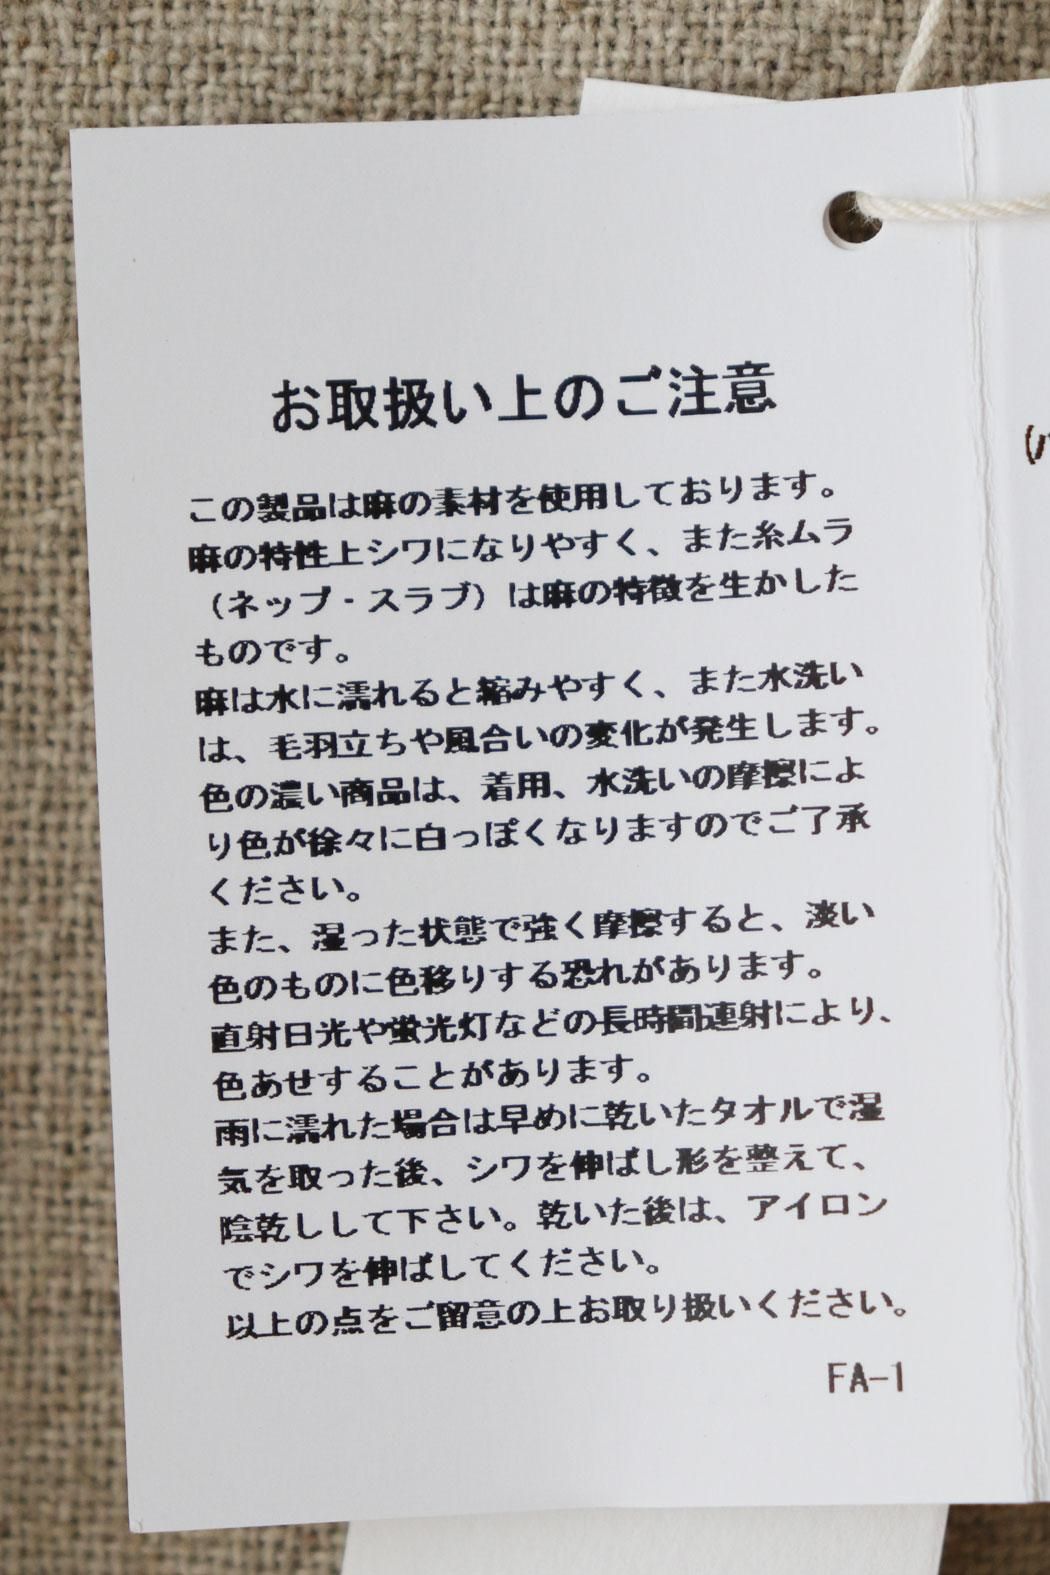 お取扱い上のご注意
この製品は麻の素材を使用しております。
麻の特性上シワになりやすく、また糸ムラ
（ネップ・スラブ）は麻の特徴を生かした
ものです。
麻は水に濡れると縮みやすく、また水洗い
は、毛羽立ちや風合いの変化が発生します。
色の濃い商品は、着用、水洗いの摩擦によ
り色が徐々に白っぽくなりますのでご了承
ください。
また、湿った状態で強く摩擦すると、淡い
色のものに色移りする恐れがあります。
直射日光や蛍光灯などの長時間連射により、
色あせすることがあります。
雨に濡れた場合は早めに乾いたタオルで湿
気を取った後、シワを伸ばし形を整えて、
陰乾しして下さい。乾いた後は、アイロン
でシワを伸ばしてください。
以上の点をご留意の上お取り扱いください。
FA-1